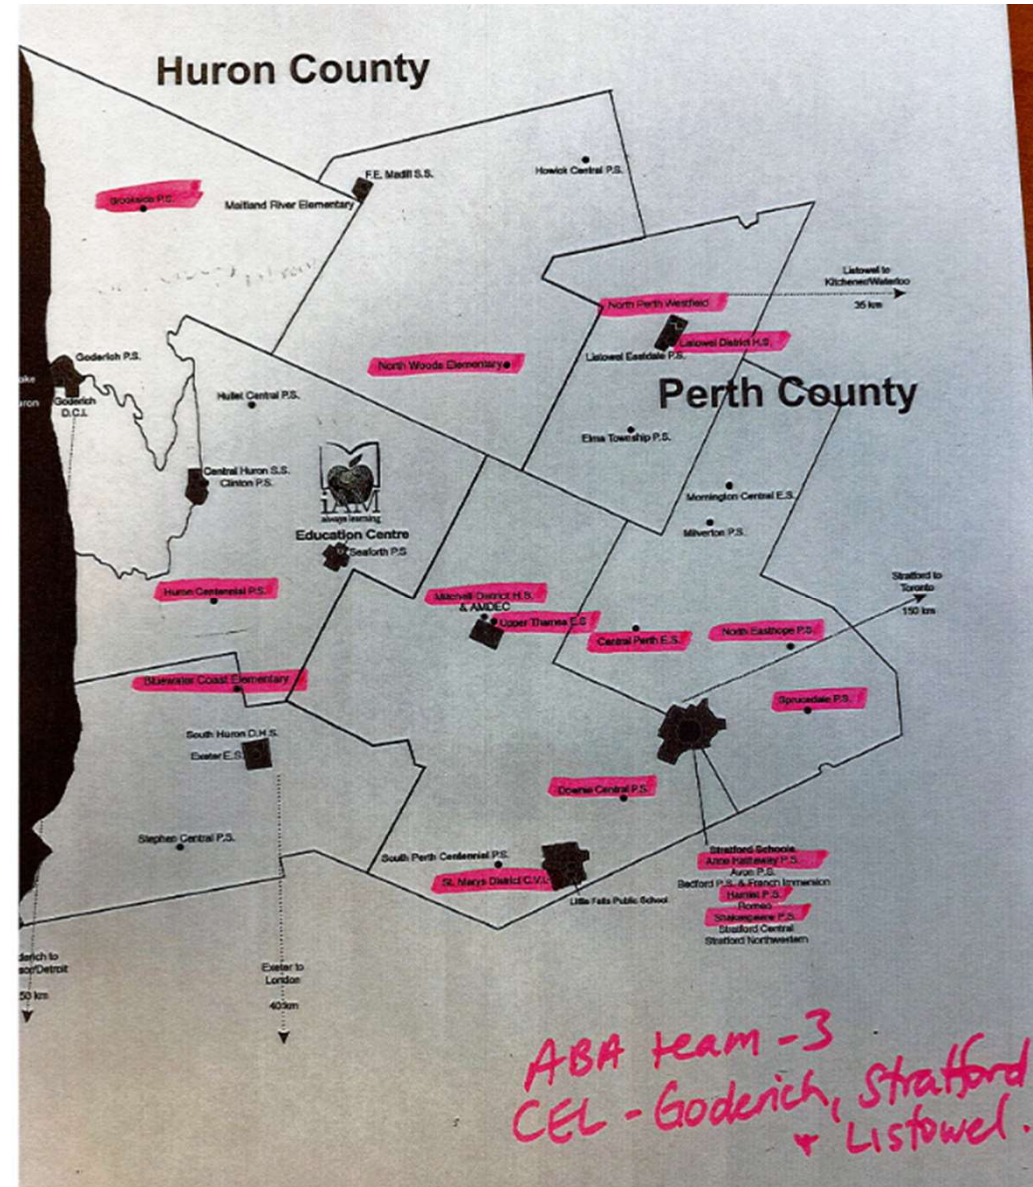 Huron County
F.E. Madill S.S.
Maitland River Elementary
Howick Central P.S.
Brookside P.S.
Listowel to
Kitchener/Waterloo
35 km
North Perth Westfield
Listowel District H.S.
Listowel Eastdale P.S.
North Woods Elementary
Goderich P.S.
Goderich
D.C.I.
Perth County
Hullet Central P.S.
Elma Township P.S.
Central Huron S.S.
Clinton P.S.
iAM
always learning
Education Centre
Seaforth P.S
Mornington Central E.S.
Milverton P.S.
Stratford to
Toronto
150 km
Huron Centennial P.S.
Mitchell District H.S.
& AMDEC
Upper Thames E.S
Central Perth E.S.
North Easthope P.S.
Bluewater Coast Elementary
Sprucedale P.S.
South Huron D.H.S.
Exeter E.S.
Downie Central P.S.
Stephen Central P.S.
South Perth Centennial P.S.
St. Marys District C.V.I.
Little Falls Public School
Stratford Schools
Anne Hathaway P.S.
Avon P.S.
Bedford P.S. & French Immersion
Hamlet P.S.
Romeo
Shakespeare P.S.
Stratford Central
Stratford Northwestern
derich to
sor/Detroit
50 km
Exeter to
London
40 km
ABA team - 3
CEL - Goderich, Stratford
+ Listowel.